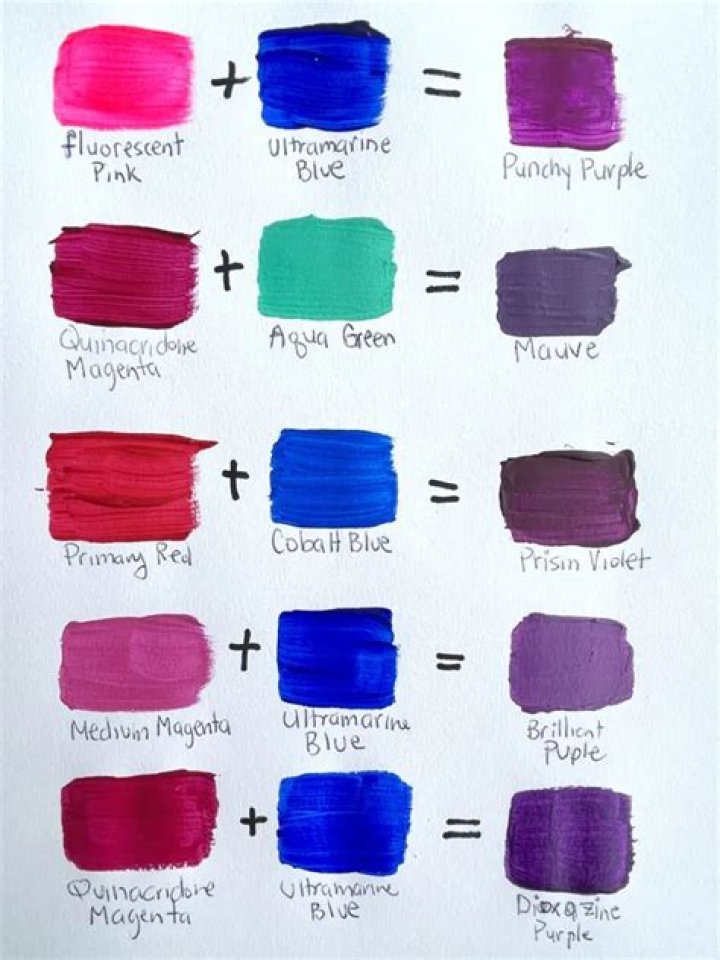 + =
fluorescent
Pink
Ultramarine
Blue
Punchy Purple
+ =
Quinacridone
Magenta
Aqua Green
Mauve
+ =
Primary Red
Cobalt Blue
Prism Violet
+ =
Medium Magenta
Ultramarine
Blue
Brilliant
Puple
+ =
Quinacridone
Magenta
Ultramarine
Blue
Dioxazine
Purple